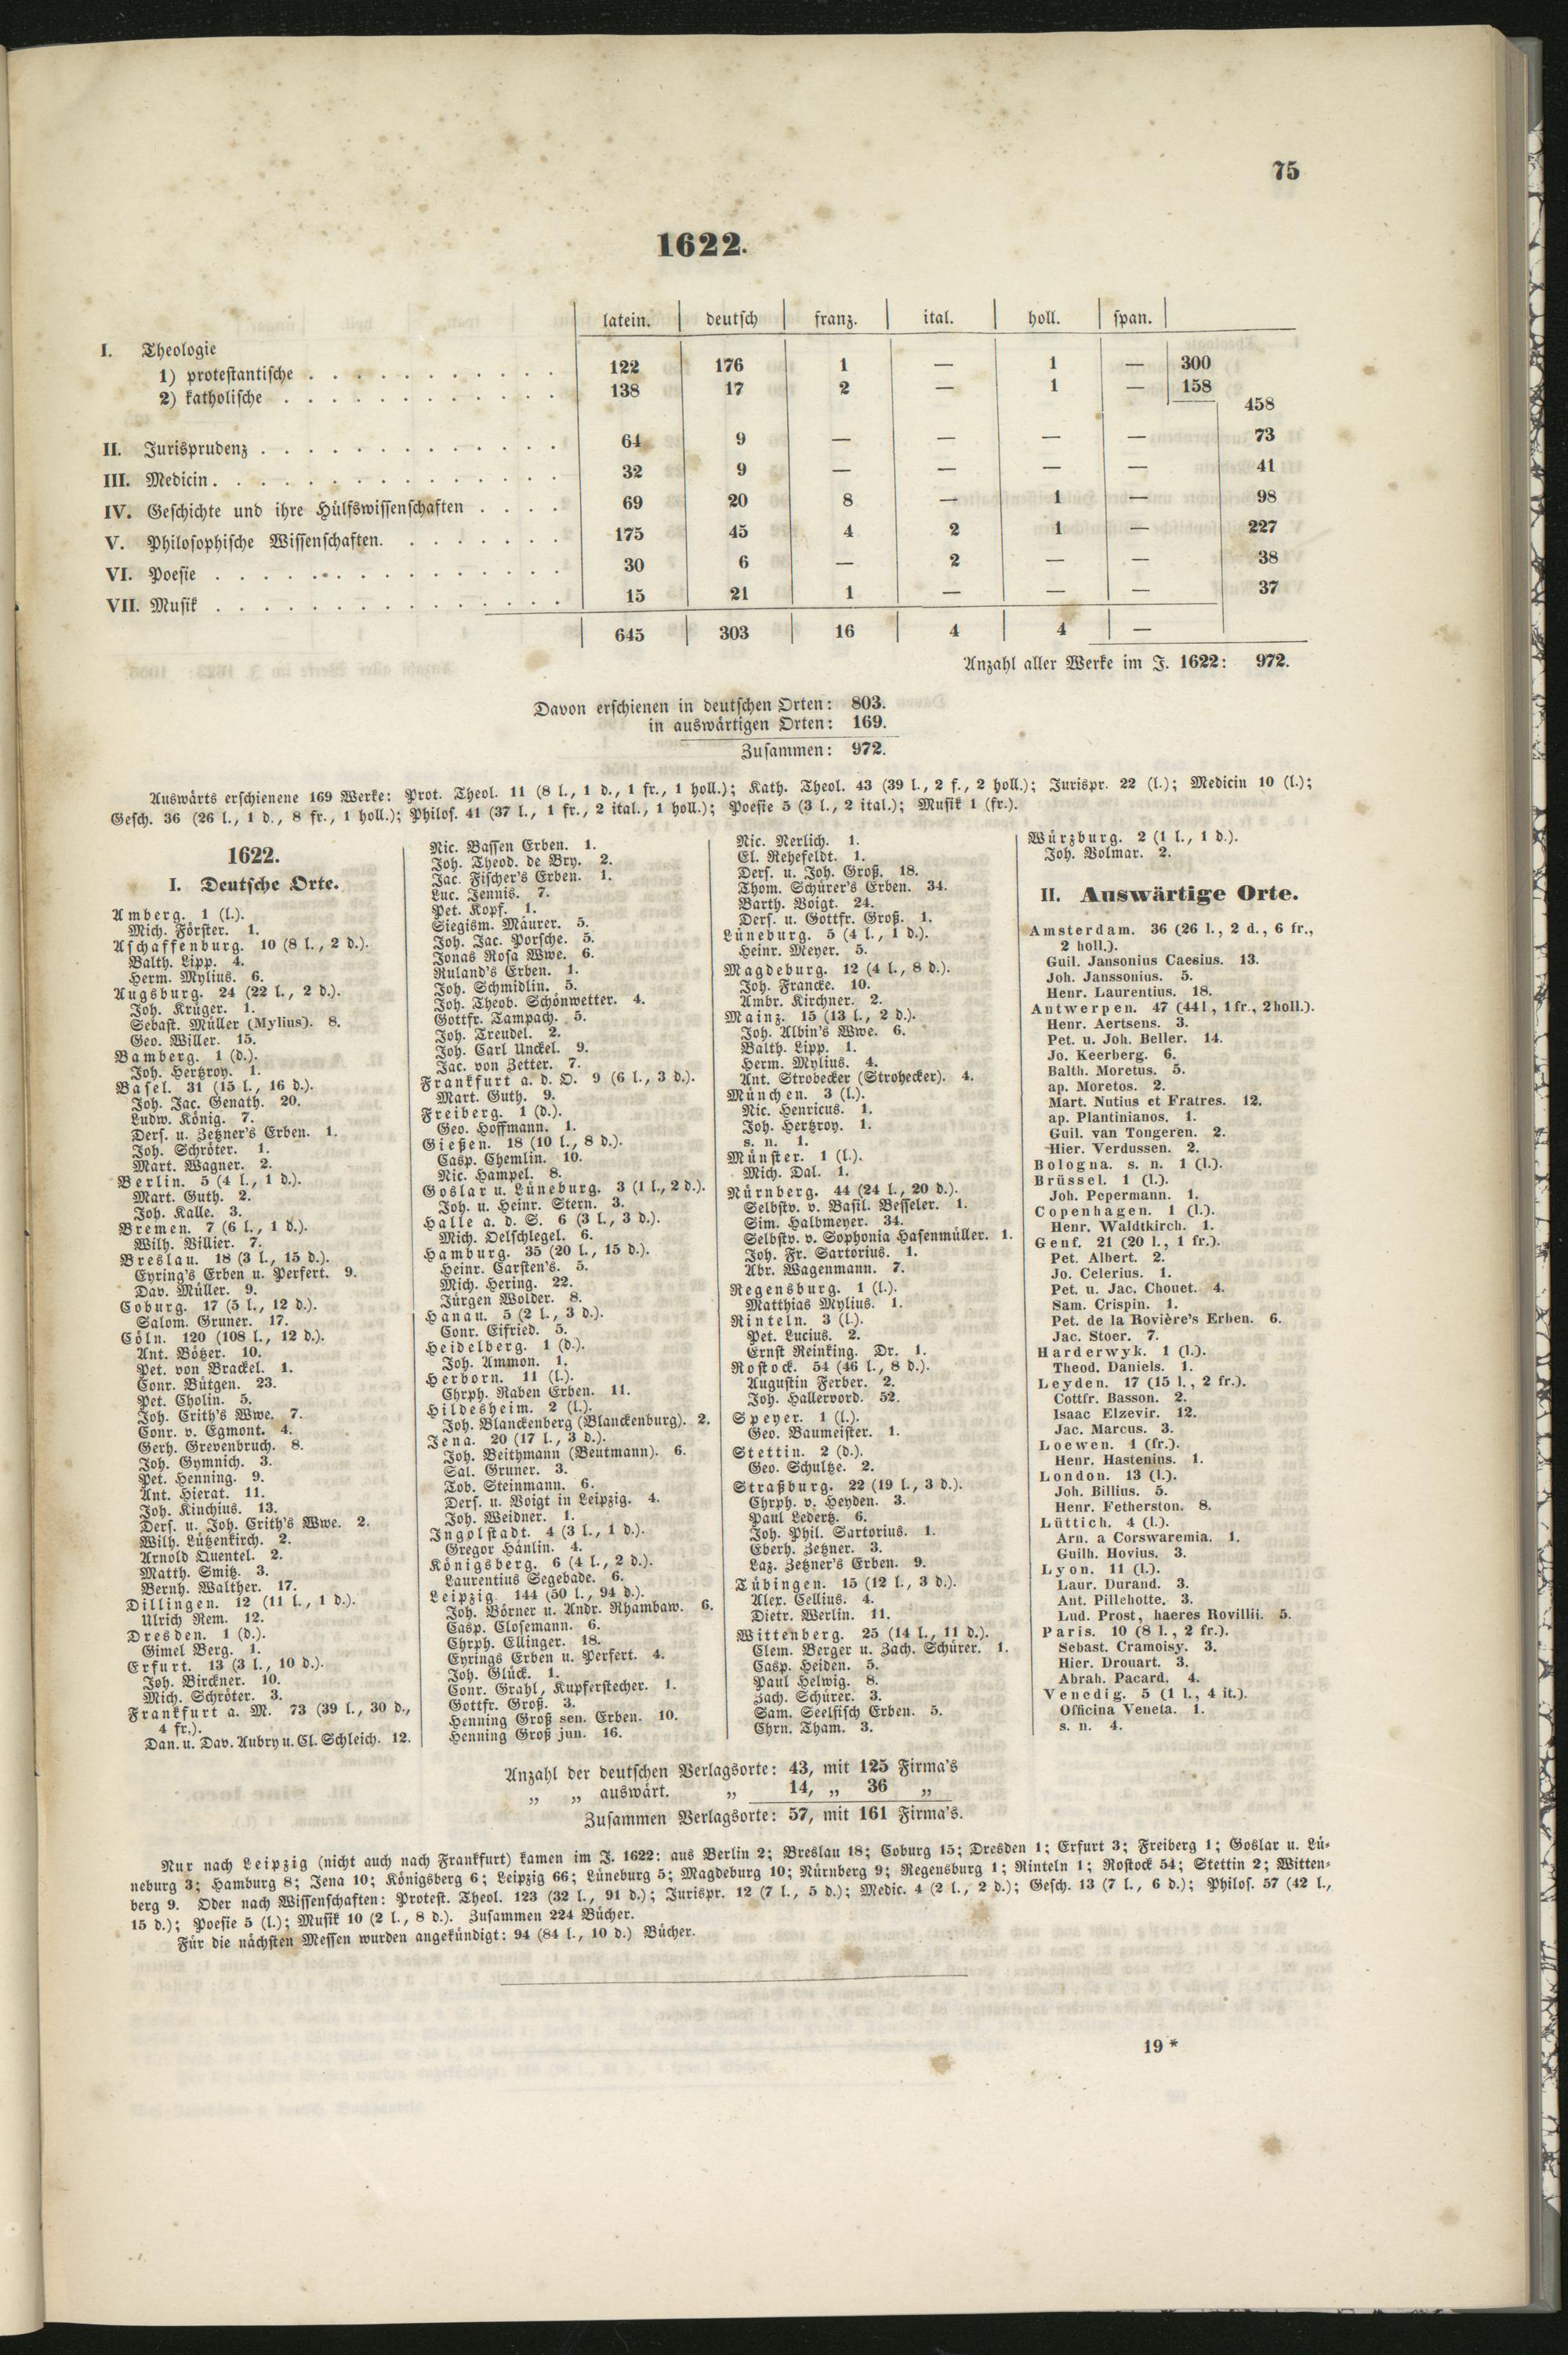 75
1622.
latein. deutsch franz. ital. holl. span.
I. Theologie
1) protestantische . . . . . . . . . . . 122 176 1 — 1 — 300
2) katholische . . . . . . . . . . . . 138 17 2 — 1 — 158
458
II. Jurisprudenz . . . . . . . . . . . . . 64 9 — — — — 73
III. Medicin . . . . . . . . . . . . . . . 32 9 — — — — 41
IV. Geschichte und ihre Hülfswissenschaften . . . . 69 20 8 — 1 — 98
V. Philosophische Wissenschaften. . . . . . . . 175 45 4 2 1 — 227
VI. Poesie . . . . . . . . . . . . . . . 30 6 — 2 — — 38
VII. Musik . . . . . . . . . . . . . . . 15 21 1 — — — 37
645 303 16 4 4 —
Anzahl aller Werke im J. 1622: 972.
Davon erschienen in deutschen Orten: 803.
in auswärtigen Orten: 169.
Zusammen: 972.
Auswärts erschienene 169 Werke: Prot. Theol. 11 (8 l., 1 d., 1 fr., 1 holl.); Kath. Theol. 43 (39 l., 2 f., 2 holl.); Jurispr. 22 (l.); Medicin 10 (l.);
Gesch. 36 (26 l., 1 d., 8 fr., 1 holl.); Philos. 41 (37 l., 1 fr., 2 ital., 1 holl.); Poesie 5 (3 l., 2 ital.); Musik 1 (fr.).
1622.
I. Deutsche Orte.
Amberg. 1 (l.).
Mich. Förster. 1.
Aschaffenburg. 10 (8 l., 2 d.).
Balth. Lipp. 4.
Herm. Mylius. 6.
Augsburg. 24 (22 l., 2 d.).
Joh. Krüger. 1.
Sebast. Müller (Mylius). 8.
Geo. Willer. 15.
Bamberg. 1 (d.).
Joh. Hertzroy. 1.
Basel. 31 (15 l., 16 d.).
Joh. Jac. Genath. 20.
Ludw. König. 7.
Ders. u. Zetzner's Erben. 1.
Joh. Schröter. 1.
Mart. Wagner. 2.
Berlin. 5 (4 l., 1 d.).
Mart. Guth. 2.
Joh. Kalle. 3.
Bremen. 7 (6 l., 1 d.).
Wilh. Villier. 7.
Breslau. 18 (3 l., 15 d.).
Eyring's Erben u. Perfert. 9.
Dav. Müller. 9.
Coburg. 17 (5 l., 12 d.).
Salom. Gruner. 17.
Cöln. 120 (108 l., 12 d.).
Ant. Bötzer. 10.
Pet. von Brackel. 1.
Conr. Bütgen. 23.
Pet. Cholin. 5.
Joh. Crith's Wwe. 7.
Conr. v. Egmont. 4.
Gerh. Grevenbruch. 8.
Joh. Gymnich. 3.
Pet. Henning. 9.
Ant. Hierat. 11.
Joh. Kinchius. 13.
Ders. u. Joh. Crith's Wwe. 2.
Wilh. Lützenkirch. 2.
Arnold Quentel. 2.
Matth. Smitz. 3.
Bernh. Walther. 17.
Dillingen. 12 (11 l., 1 d.).
Ulrich Rem. 12.
Dresden. 1 (d.).
Gimel Berg. 1.
Erfurt. 13 (3 l., 10 d.).
Joh. Birckner. 10.
Mich. Schröter. 3.
Frankfurt a. M. 73 (39 l., 30 d.,
4 fr.).
Dan. u. Dav. Aubry u. Cl. Schleich. 12.
Nic. Bassen Erben. 1.
Joh. Theod. de Bry. 2.
Jac. Fischer's Erben. 1.
Luc. Jennis. 7.
Pet. Kopf. 1.
Siegism. Mäurer. 5.
Joh. Jac. Porsche. 5.
Jonas Rosa Wwe. 6.
Ruland's Erben. 1.
Joh. Schmidlin. 5.
Joh. Theob. Schönwetter. 4.
Gottfr. Tampach. 5.
Joh. Treudel. 2.
Joh. Carl Unckel. 9.
Jac. von Zetter. 7.
Frankfurt a. d. O. 9 (6 l., 3 d.).
Mart. Guth. 9.
Freiberg. 1 (d.).
Geo. Hoffmann. 1.
Gießen. 18 (10 l., 8 d.).
Casp. Chemlin. 10.
Nic. Hampel. 8.
Goslar u. Lüneburg. 3 (1 l., 2 d.).
Joh. u. Heinr. Stern. 3.
Halle a. d. S. 6 (3 l., 3 d.).
Mich. Oelschlegel. 6.
Hamburg. 35 (20 l., 15 d.).
Heinr. Carsten's. 5.
Mich. Hering. 22.
Jürgen Wolder. 8.
Hanau. 5 (2 l., 3 d.).
Conr. Eifried. 5.
Heidelberg. 1 (d.).
Joh. Ammon. 1.
Herborn. 11 (l.).
Chrph. Raben Erben. 11.
Hildesheim. 2 (l.).
Joh. Blanckenberg (Blanckenburg). 2.
Jena. 20 (17 l., 3 d.).
Joh. Beithmann (Beutmann). 6.
Sal. Gruner. 3.
Tob. Steinmann. 6.
Ders. u. Voigt in Leipzig. 4.
Joh. Weidner. 1.
Ingolstadt. 4 (3 l., 1 d.).
Gregor Hänlin. 4.
Königsberg. 6 (4 l., 2 d.).
Laurentius Segebade. 6.
Leipzig 144 (50 l., 94 d.).
Joh. Börner u. Andr. Rhambaw. 6.
Casp. Closemann. 6.
Chrph. Ellinger. 18.
Eyrings Erben u. Perfert. 4.
Joh. Glück. 1.
Conr. Grahl, Kupferstecher. 1.
Gottfr. Groß. 3.
Henning Groß sen. Erben. 10.
Henning Groß jun. 16.
Nic. Nerlich. 1.
El. Rehefeldt. 1.
Ders. u. Joh. Groß. 18.
Thom. Schürer's Erben. 34.
Barth. Voigt. 24.
Ders. u. Gottfr. Groß. 1.
Lüneburg. 5 (4 l., 1 d.).
Heinr. Meyer. 5.
Magdeburg. 12 (4 l., 8 d.).
Joh. Francke. 10.
Ambr. Kirchner. 2.
Mainz. 15 (13 l., 2 d.).
Joh. Albin's Wwe. 6.
Balth. Lipp. 1.
Herm. Mylius. 4.
Ant. Strobecker (Strohecker). 4.
München. 3 (l.).
Nic. Henricus. 1.
Joh. Hertzroy. 1.
s. n. 1.
Münster. 1 (l.).
Mich. Dal. 1.
Nürnberg. 44 (24 l., 20 d.).
Selbstv. v. Basil. Besseler. 1.
Sim. Halbmeyer. 34.
Selbstv. v. Sophonia Hasenmüller. 1.
Joh. Fr. Sartorius. 1.
Abr. Wagenmann. 7.
Regensburg. 1 (l.).
Matthias Mylius. 1.
Rinteln. 3 (l.).
Pet. Lucius. 2.
Ernst Reinking. Dr. 1.
Rostock. 54 (46 l., 8 d.).
Augustin Ferber. 2.
Joh. Hallervord. 52.
Speyer. 1 (l.).
Geo. Baumeister. 1.
Stettin. 2 (d.).
Geo. Schultze. 2.
Straßburg. 22 (19 l., 3 d.).
Chrph. v. Heyden. 3.
Paul Ledertz. 6.
Joh. Phil. Sartorius. 1.
Eberh. Zetzner. 3.
Laz. Zetzner's Erben. 9.
Tübingen. 15 (12 l., 3 d.).
Alex. Cellius. 4.
Dietr. Werlin. 11.
Wittenberg. 25 (14 l., 11 d.).
Clem. Berger u. Zach. Schürer. 1.
Casp. Heiden. 5.
Paul Helwig. 8.
Zach. Schürer. 3.
Sam. Seelfisch Erben. 5.
Chrn. Tham. 3.
Würzburg. 2 (1 l., 1 d.).
Joh. Volmar. 2.
II. Auswärtige Orte.
Amsterdam. 36 (26 l., 2 d., 6 fr.,
2 holl.).
Guil. Jansonius Caesius. 13.
Joh. Janssonius. 5.
Henr. Laurentius. 18.
Antwerpen. 47 (44 l., 1 fr., 2 holl.).
Henr. Aertsens. 3.
Pet. u. Joh. Beller. 14.
Jo. Keerberg. 6.
Balth. Moretus. 5.
ap. Moretos. 2.
Mart. Nutius et Fratres. 12.
ap. Plantinianos. 1.
Guil. van Tongeren. 2.
Hier. Verdussen. 2.
Bologna. s. n. 1 (l.).
Brüssel. 1 (l.).
Joh. Pepermann. 1.
Copenhagen. 1 (l.).
Henr. Waldtkirch. 1.
Genf. 21 (20 l., 1 fr.).
Pet. Albert. 2.
Jo. Celerius. 1.
Pet. u. Jac. Chouet. 4.
Sam. Crispin. 1.
Pet. de la Rovière's Erben. 6.
Jac. Stoer. 7.
Harderwyk. 1 (l.).
Theod. Daniels. 1.
Leyden. 17 (15 l., 2 fr.).
Cottfr. Basson. 2.
Isaac Elzevir. 12.
Jac. Marcus. 3.
Loewen. 1 (fr.).
Henr. Hastenius. 1.
London. 13 (l.).
Joh. Billius. 5.
Henr. Fetherston. 8.
Lüttich. 4 (l.).
Arn. a Corswaremia. 1.
Guilh. Hovius. 3.
Lyon. 11 (l.).
Laur. Durand. 3.
Ant. Pillehotte. 3.
Lud. Prost, haeres Rovillii. 5.
Paris. 10 (8 l., 2 fr.).
Sebast. Cramoisy. 3.
Hier. Drouart. 3.
Abrah. Pacard. 4.
Venedig. 5 (1 l., 4 it.).
Officina Veneta. 1.
s. n. 4.
Anzahl der deutschen Verlagsorte: 43, mit 125 Firma's
„ „ auswärt. „ 14, „ 36 „
Zusammen Verlagsorte: 57, mit 161 Firma's.
Nur nach Leipzig (nicht auch nach Frankfurt) kamen im J. 1622: aus Berlin 2; Breslau 18; Coburg 15; Dresden 1; Erfurt 3; Freiberg 1; Goslar u. Lü-
neburg 3; Hamburg 8; Jena 10; Königsberg 6; Leipzig 66; Lüneburg 5; Magdeburg 10; Nürnberg 9; Regensburg 1; Rinteln 1; Rostock 54; Stettin 2; Witten-
berg 9. Oder nach Wissenschaften: Protest. Theol. 123 (32 l., 91 d.); Jurispr. 12 (7 l., 5 d.); Medic. 4 (2 l., 2 d.); Gesch. 13 (7 l., 6 d.); Philos. 57 (42 l.,
15 d.); Poesie 5 (l.); Musik 10 (2 l., 8 d.). Zusammen 224 Bücher.
Für die nächsten Messen wurden angekündigt: 94 (84 l., 10 d.) Bücher.
19 *